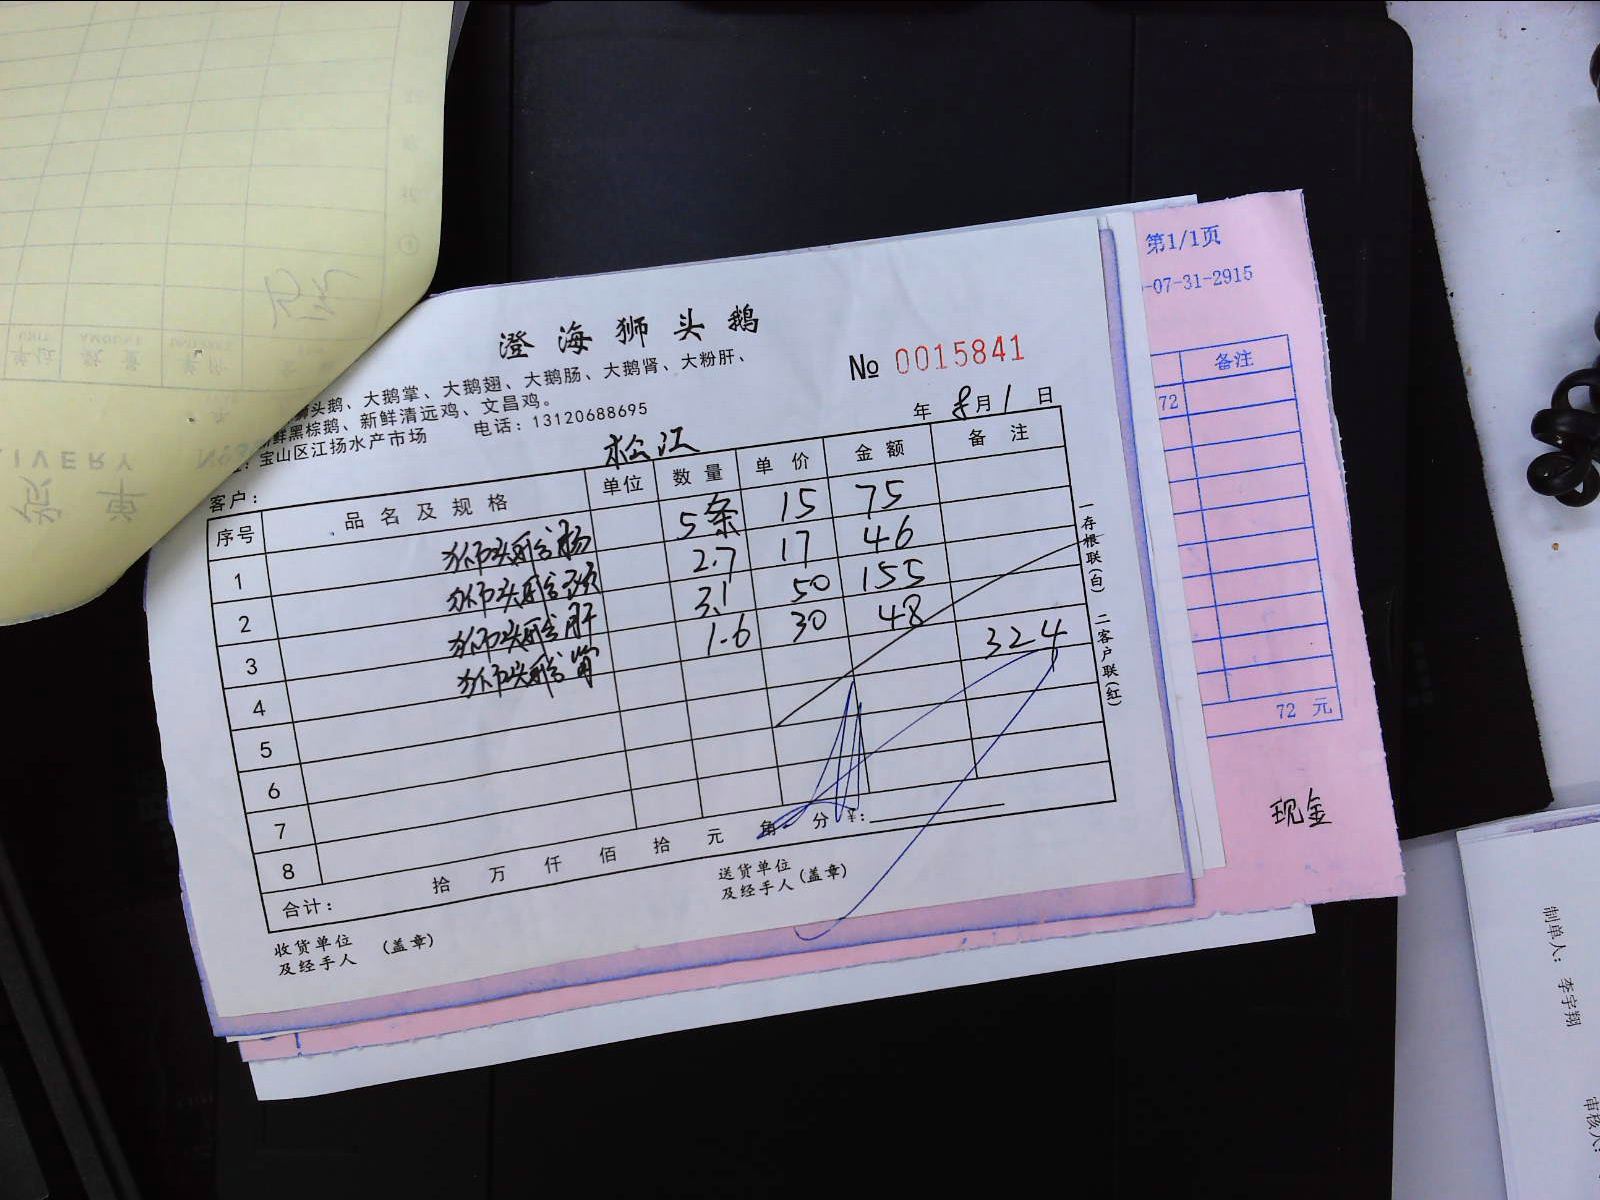 澄海狮头鹅
狮头鹅、大鹅掌、大鹅翅、大鹅肠、大鹅肾、大粉肝、
新鲜黑棕鹅、新鲜清远鸡、文昌鸡。
宝山区江扬水产市场 电话：13120688695
№ 0015841
年 8月1日
客户： 松江
序号 品名及规格 单位 数量 单价 金额 备注
1 狮头鹅肠 5条 15 75
2 狮头鹅颈 2.7 17 46
3 狮头鹅肝 3.1 50 155
4 狮头鹅肾 1.6 30 48
324
5
6
7
8
合计： 拾 万 仟 佰 拾 元 角 分 ¥：
收货单位及经手人（盖章）
送货单位及经手人（盖章）
一存根联（白） 二客户联（红）
第1/1页
-07-31-2915
备注
72
72 元
现金
制单人：李宇翔
审核人